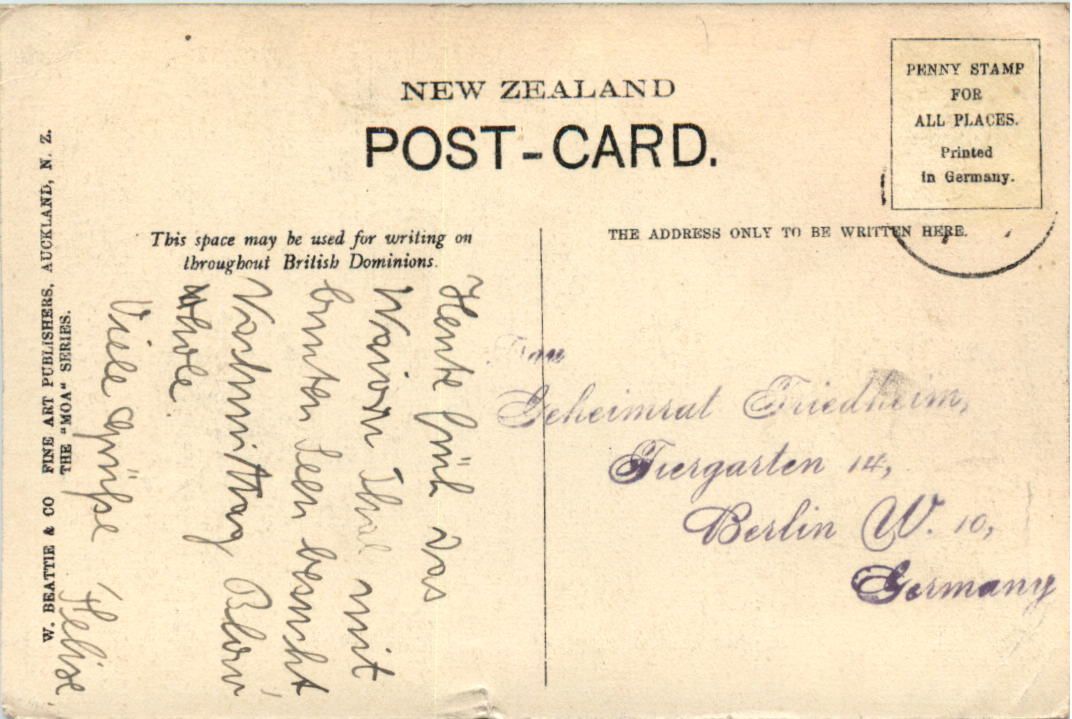 NEW ZEALAND
POST-CARD.
PENNY STAMP
FOR
ALL PLACES.
Printed
in Germany.
This space may be used for writing on
throughout British Dominions.
THE ADDRESS ONLY TO BE WRITTEN HERE.
W. BEATTIE & CO FINE ART PUBLISHERS, AUCKLAND, N. Z.
THE "MOA" SERIES.
Heute früh das
Thal mit
bunten Seen besucht
Nachmittag Blow
whole.
Viele Grüße
Frau
Geheimrat Friedheim,
Tiergarten 14,
Berlin W. 10,
Germany